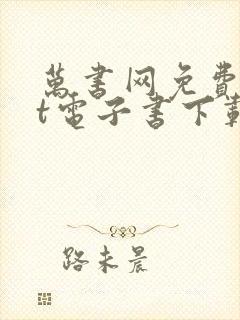 萬書网免費
t電子書下載
路未晨